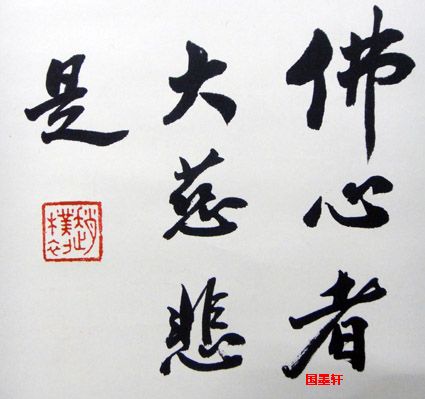 佛心者
大慈悲
是
趙樸初
国墨轩